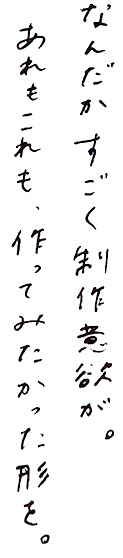 なんだか すごく制作意欲が。
あれもこれも、作ってみたかった形を。